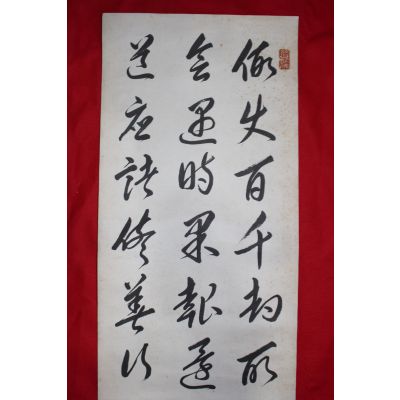 假使百千劫所
會遇時果報還
應諸修善行